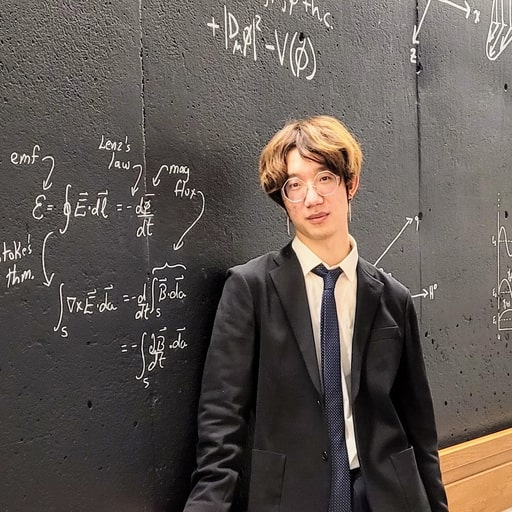 + |Dμφ|² - V(φ)
+ h.c.
emf
Lenz's
law
mag
flux
ε = ∮ E⃗·dl⃗ = - dΦ/dt
Stoke's
thm.
∫s ∇×E⃗·da⃗ = - d/dt ∫s B⃗·da⃗
= - ∫s dB⃗/dt ·da⃗
z
x
H⁰